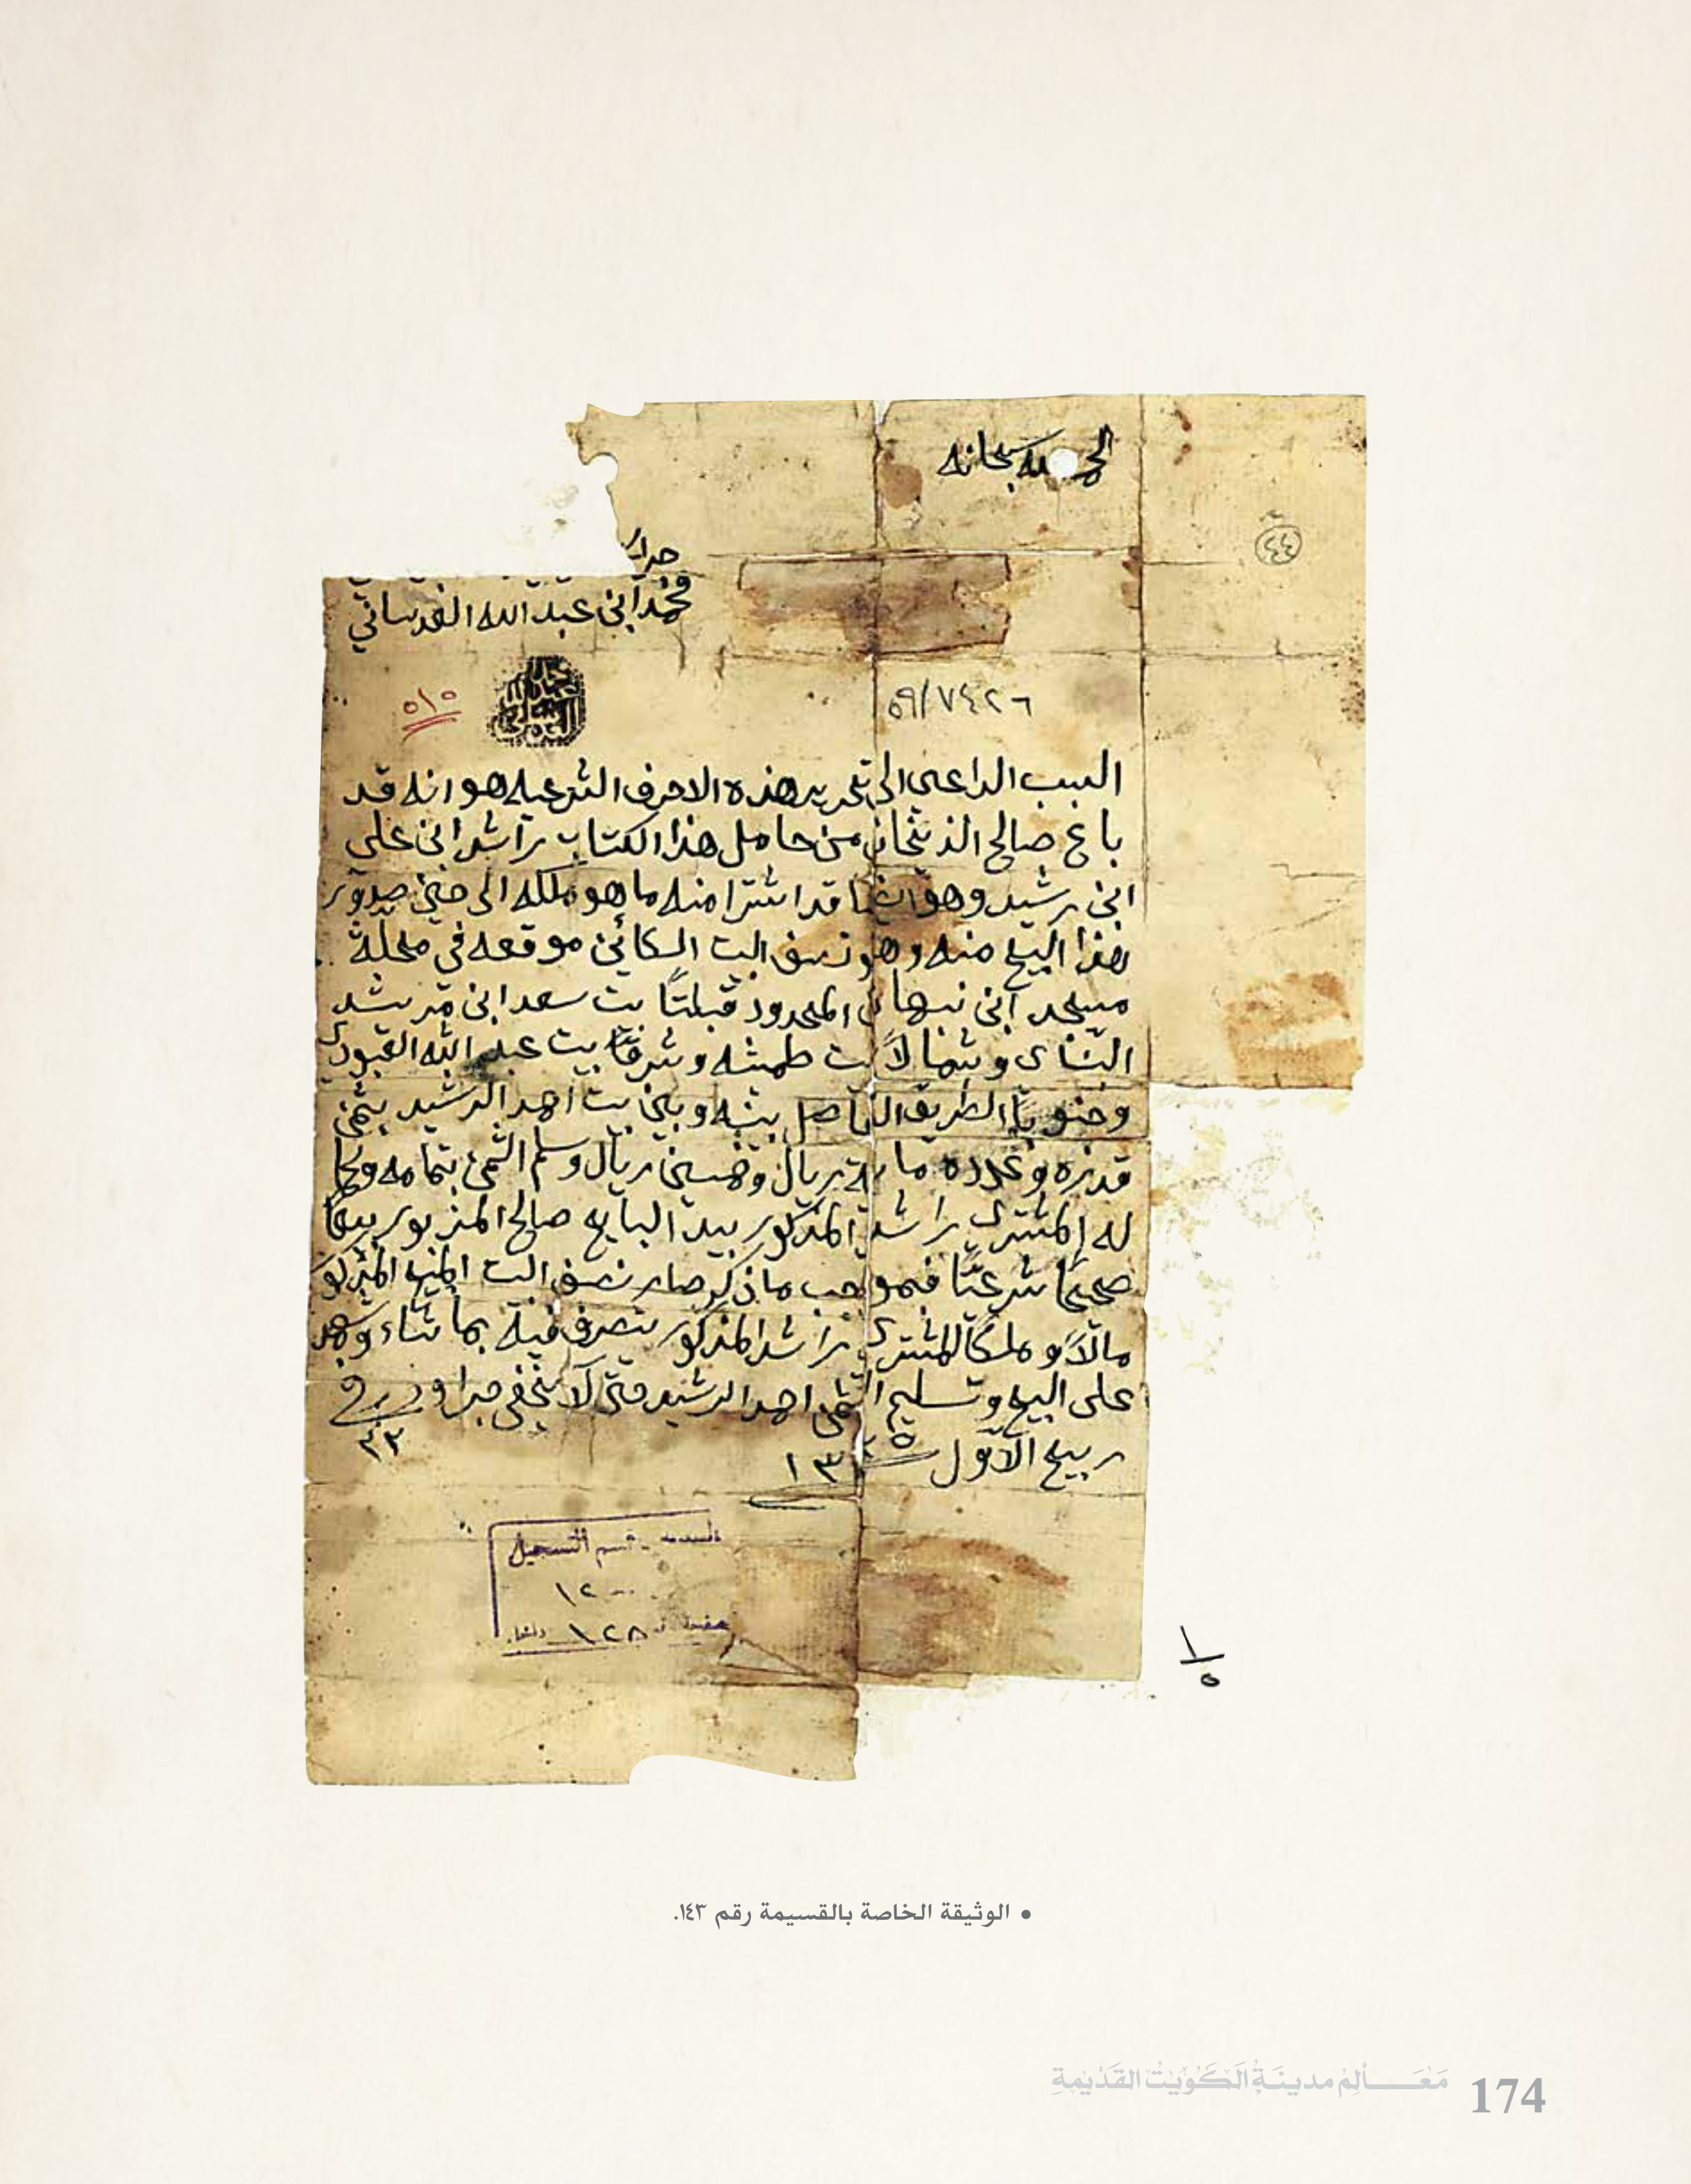 الحمد لله سبحانه
٤٤
محمد ابن عبد الله العدساني
٥١٥
٥٩/٧٤٢٦
السبب الداعي الى تحرير هذه الاحرف الشرعيه هو انه قد
باع صالح الذ من حامل هذا الكتاب راشد ابن علي
ابن رشيد وهو ايضا قد اشترا منه ما هو ملكه الى حين صدور
هذا البيع منه وهو نصف البيت الكائن موقعه في محلة
مسجد ابن نبهان المحدود قبلتاً بيت سعد ابن مرشد
وشمالاً بيت طمشه وشرقاً بيت عبد الله العبودي
وجنوباً الطريق الفاصل بينه وبين بيت احمد الرشيد بثمن
قدره وعدده ماية ريال وخمسين ريال وسلم الثمن بتمامه
له المشتري راشد المذكور بيد البايع صالح المزبور بيعاً
صحيحاً شرعيّاً فبموجب ما ذكر صار نصف البيت المذكور
مالاً وملكاً للمشتري راشد المذكور يتصرف فيه بما شاء وشهد
على البيع وتسليم الثمن احمد الرشيد حتى لا يخفى جرا وحرر في
٢٢
ربيع الاول سنة ١٣
قسم التسجيل
١٢٠٠
١٢٨
١
٥
• الوثيقة الخاصة بالقسيمة رقم ١٤٣.
مَعَالِمُ مدينَةُ الكُوَيتُ القَدْيمةِ 174